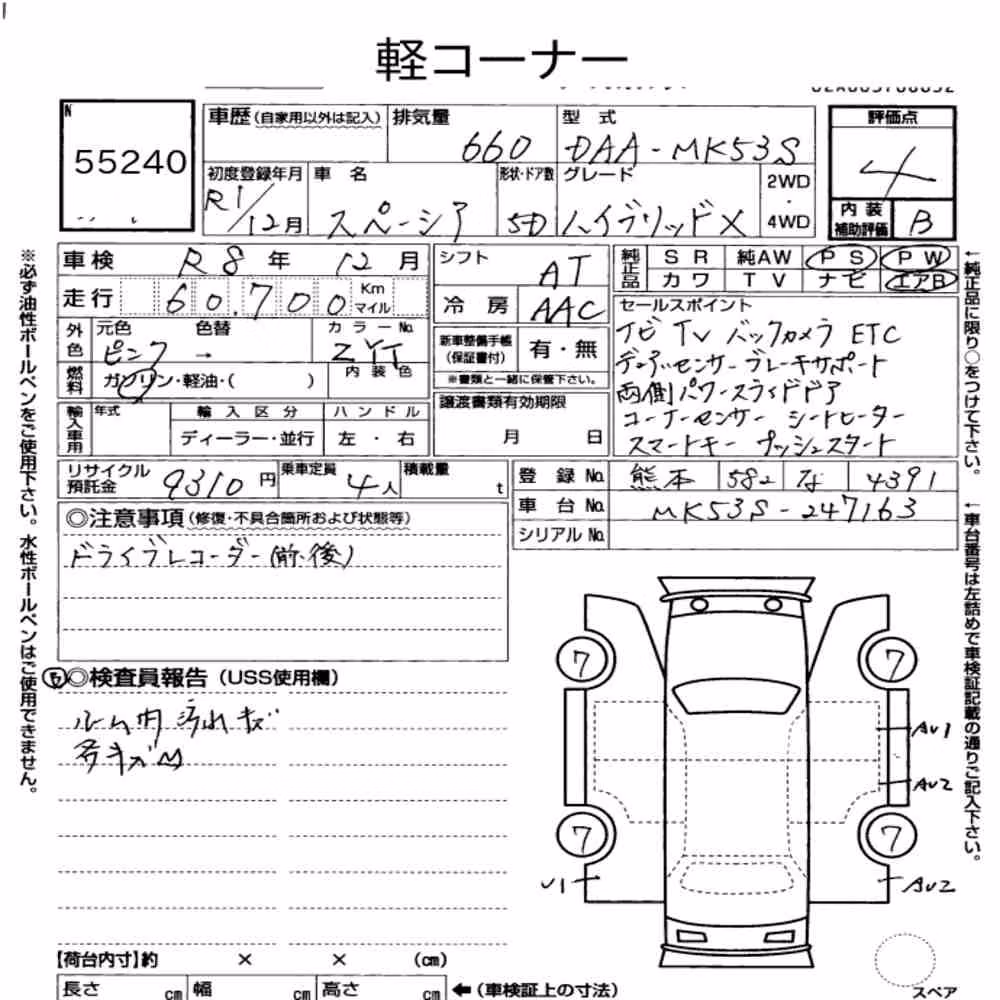 軽コーナー
N
55240
車歴 (自家用以外は記入)
排気量
660
型 式
DAA-MK53S
評価点
4
初度登録年月
R1/12月
車 名
スペーシア
形状・ドア数
5D
グレード
ハイブリッドX
2WD
・
4WD
内 装
補助評価
B
車検 R8年 12月
走行 60,700 Km
マイル
外色 元色 色替 カラーNo.
ピンク → ZYT
燃料 ガソリン・軽油・( ) 内 装 色
輸入車用 年式 輸 入 区 分 ハ ン ド ル
ディーラー・並行 左 ・ 右
リサイクル
預託金 9310円 乗車定員 4人 積載量 t
シフト AT
冷 房 AAC
新車整備手帳
(保証書付) 有・無
※書類と一緒に保管下さい。
譲渡書類有効期限
月 日
純正品 SR 純AW PS PW
カワ TV ナビ エアB
セールスポイント
ナビ TV バックカメラ ETC
デュアルセンサーブレーキサポート
両側パワースライドドア
コーナーセンサー シートヒーター
スマートキー プッシュスタート
登 録 No. 熊本 582 な 4391
車 台 No. MK53S-247163
シリアル No.
◎注意事項 (修復・不具合箇所および状態等)
ドライブレコーダー(前・後)
◎検査員報告 (USS使用欄)
ルーム内汚れキズ
多キズ
7
7
7
7
AU1
AU2
AU2
U1
スペア
【荷台内寸】約 × × (cm)
長さ cm 幅 cm 高さ cm ←(車検証上の寸法)
※必ず油性ボールペンをご使用下さい。水性ボールペンはご使用できません。
←純正品に限り○をつけて下さい。
←車台番号は左詰めで車検証記載の通りご記入下さい。